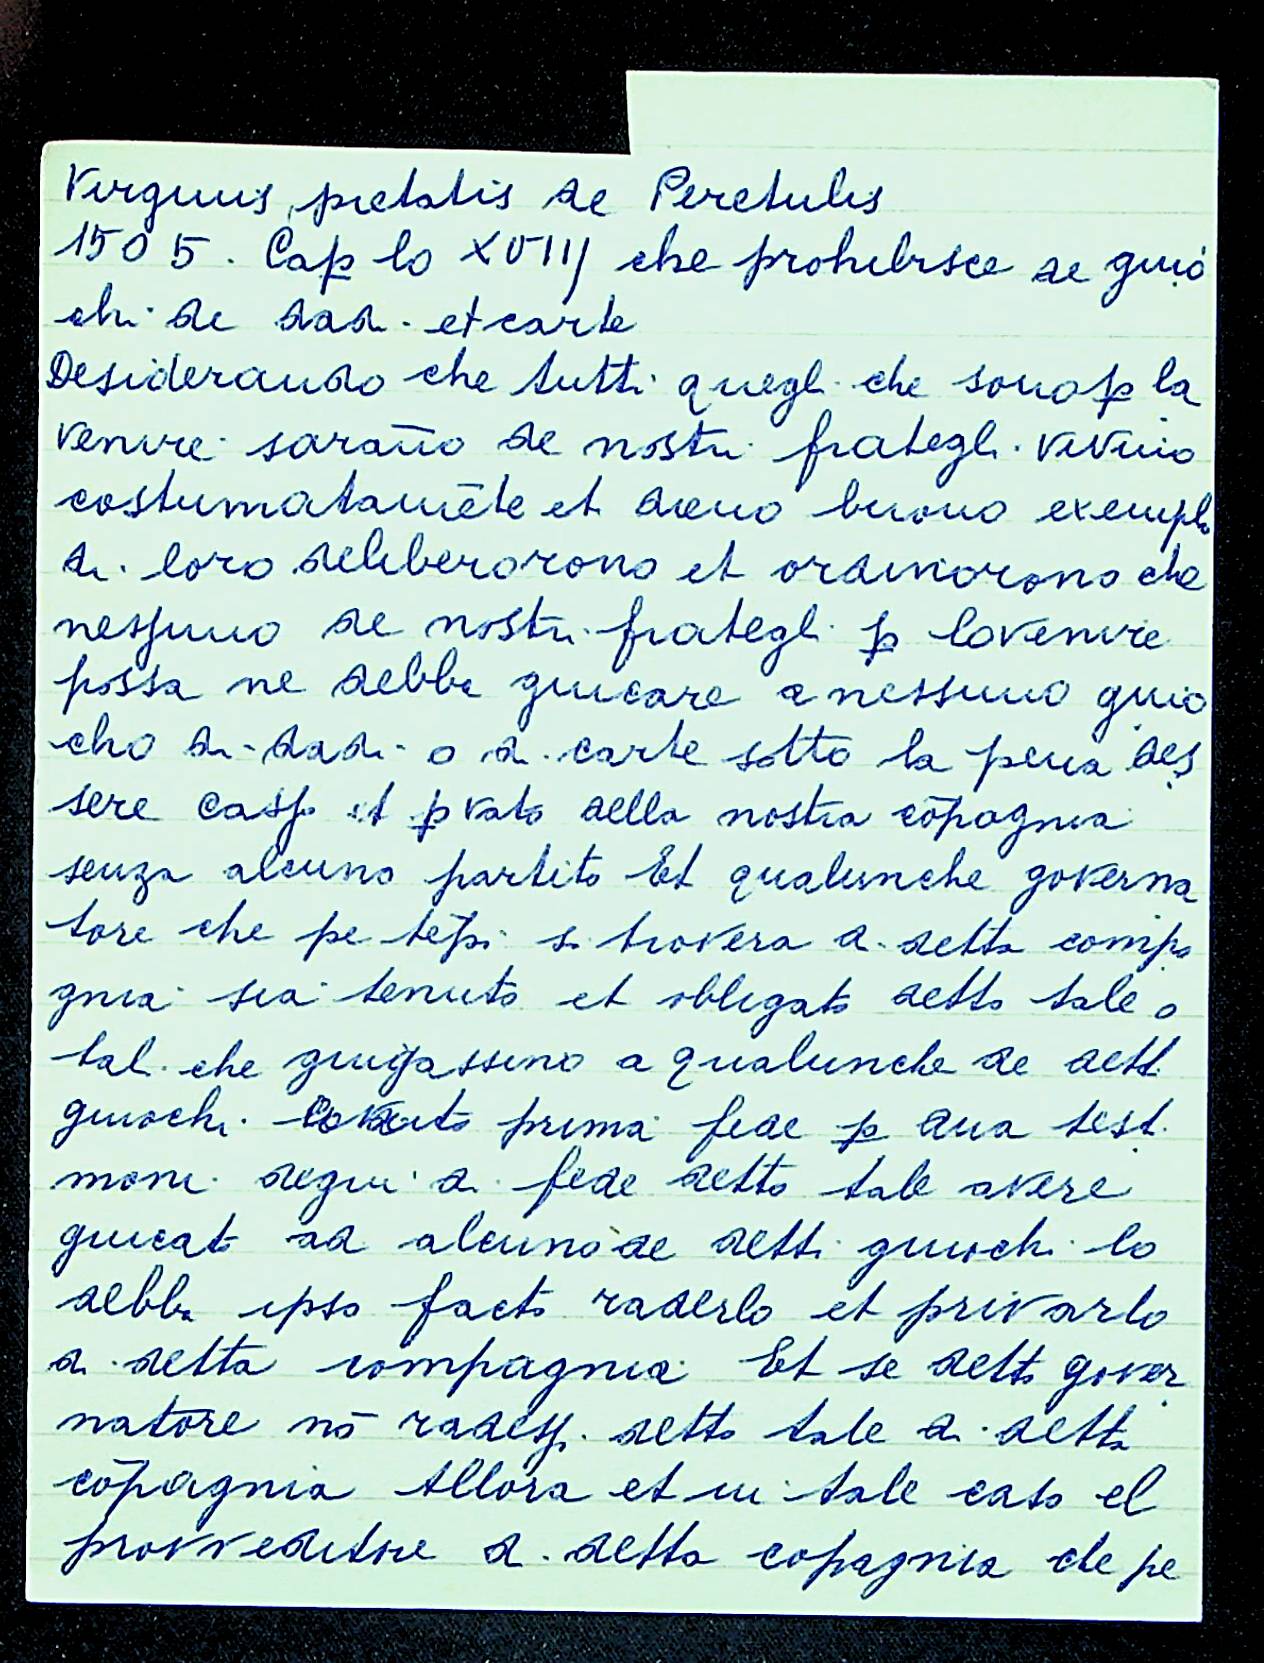 Virginis pietatis de Peretulis
1505. Cap lo XVIIJ che prohibisce de giuo
chi de dadi et carte
Desiderando che tutti quegli che sono ꝑ la
venire saranno de nostri frategli vivino
costumatamēte et dieno buono exemplo
di loro deliberorono et ordinorono che
nessuno de nostri frategli ꝑ lovenire
possa ne debba giucare a nessuno giuo
cho di dadi o di carte sotto la pena des
sere casso et ꝑvato della nostra cōpagnia
senza alcuno partito Et qualunche governa
tore che pe tēpi si trovera di detta compa
gnia sia tenuto et obligato detto tale o
tali che giugassino a qualunche de detti
giuochi prima fede ꝑ dua testi
moni degni di fede detto tale avere
giucato ad alcuno de detti giuochi lo
debba ipso facto raderlo et privarlo
di detta compagnia Et se detto gover
natore nō radessi detto tale di detta
cōpagnia Allora et in tale caso el
provveditore di detta copagnia che pe